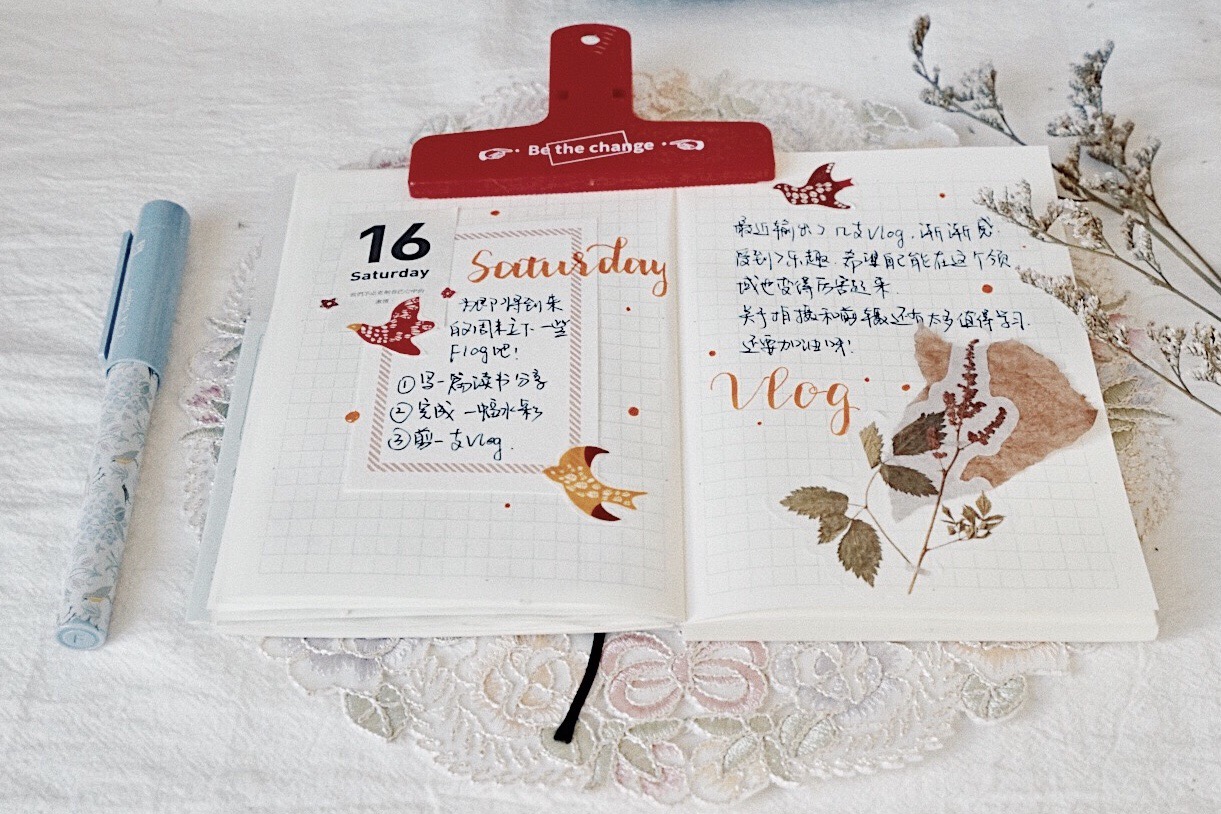 Be the change
16
Saturday
Saturday
为即将到来
的周末立下一些
Flag吧!
①写一篇读书分享
②完成一幅水彩
③剪一支Vlog.
最近输出了几支Vlog,渐渐感
受到了乐趣.希望自己能在这个领
域也变得厉害起来.
关于拍摄和剪辑还有太多值得学习.
还要加油呀!
Vlog